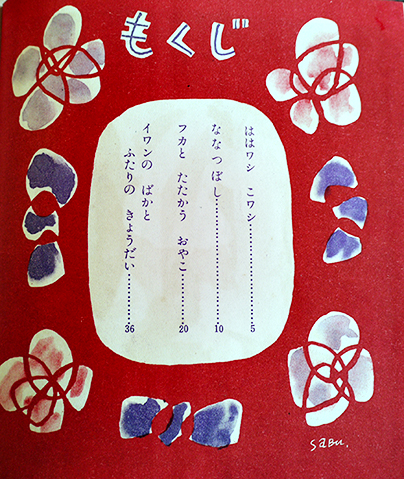 もくじ
ははワシ こワシ……………………5
ななつぼし……………………10
フカと たたかう おやこ…………20
イワンの ばかと
ふたりの きょうだい…………36
SABU.